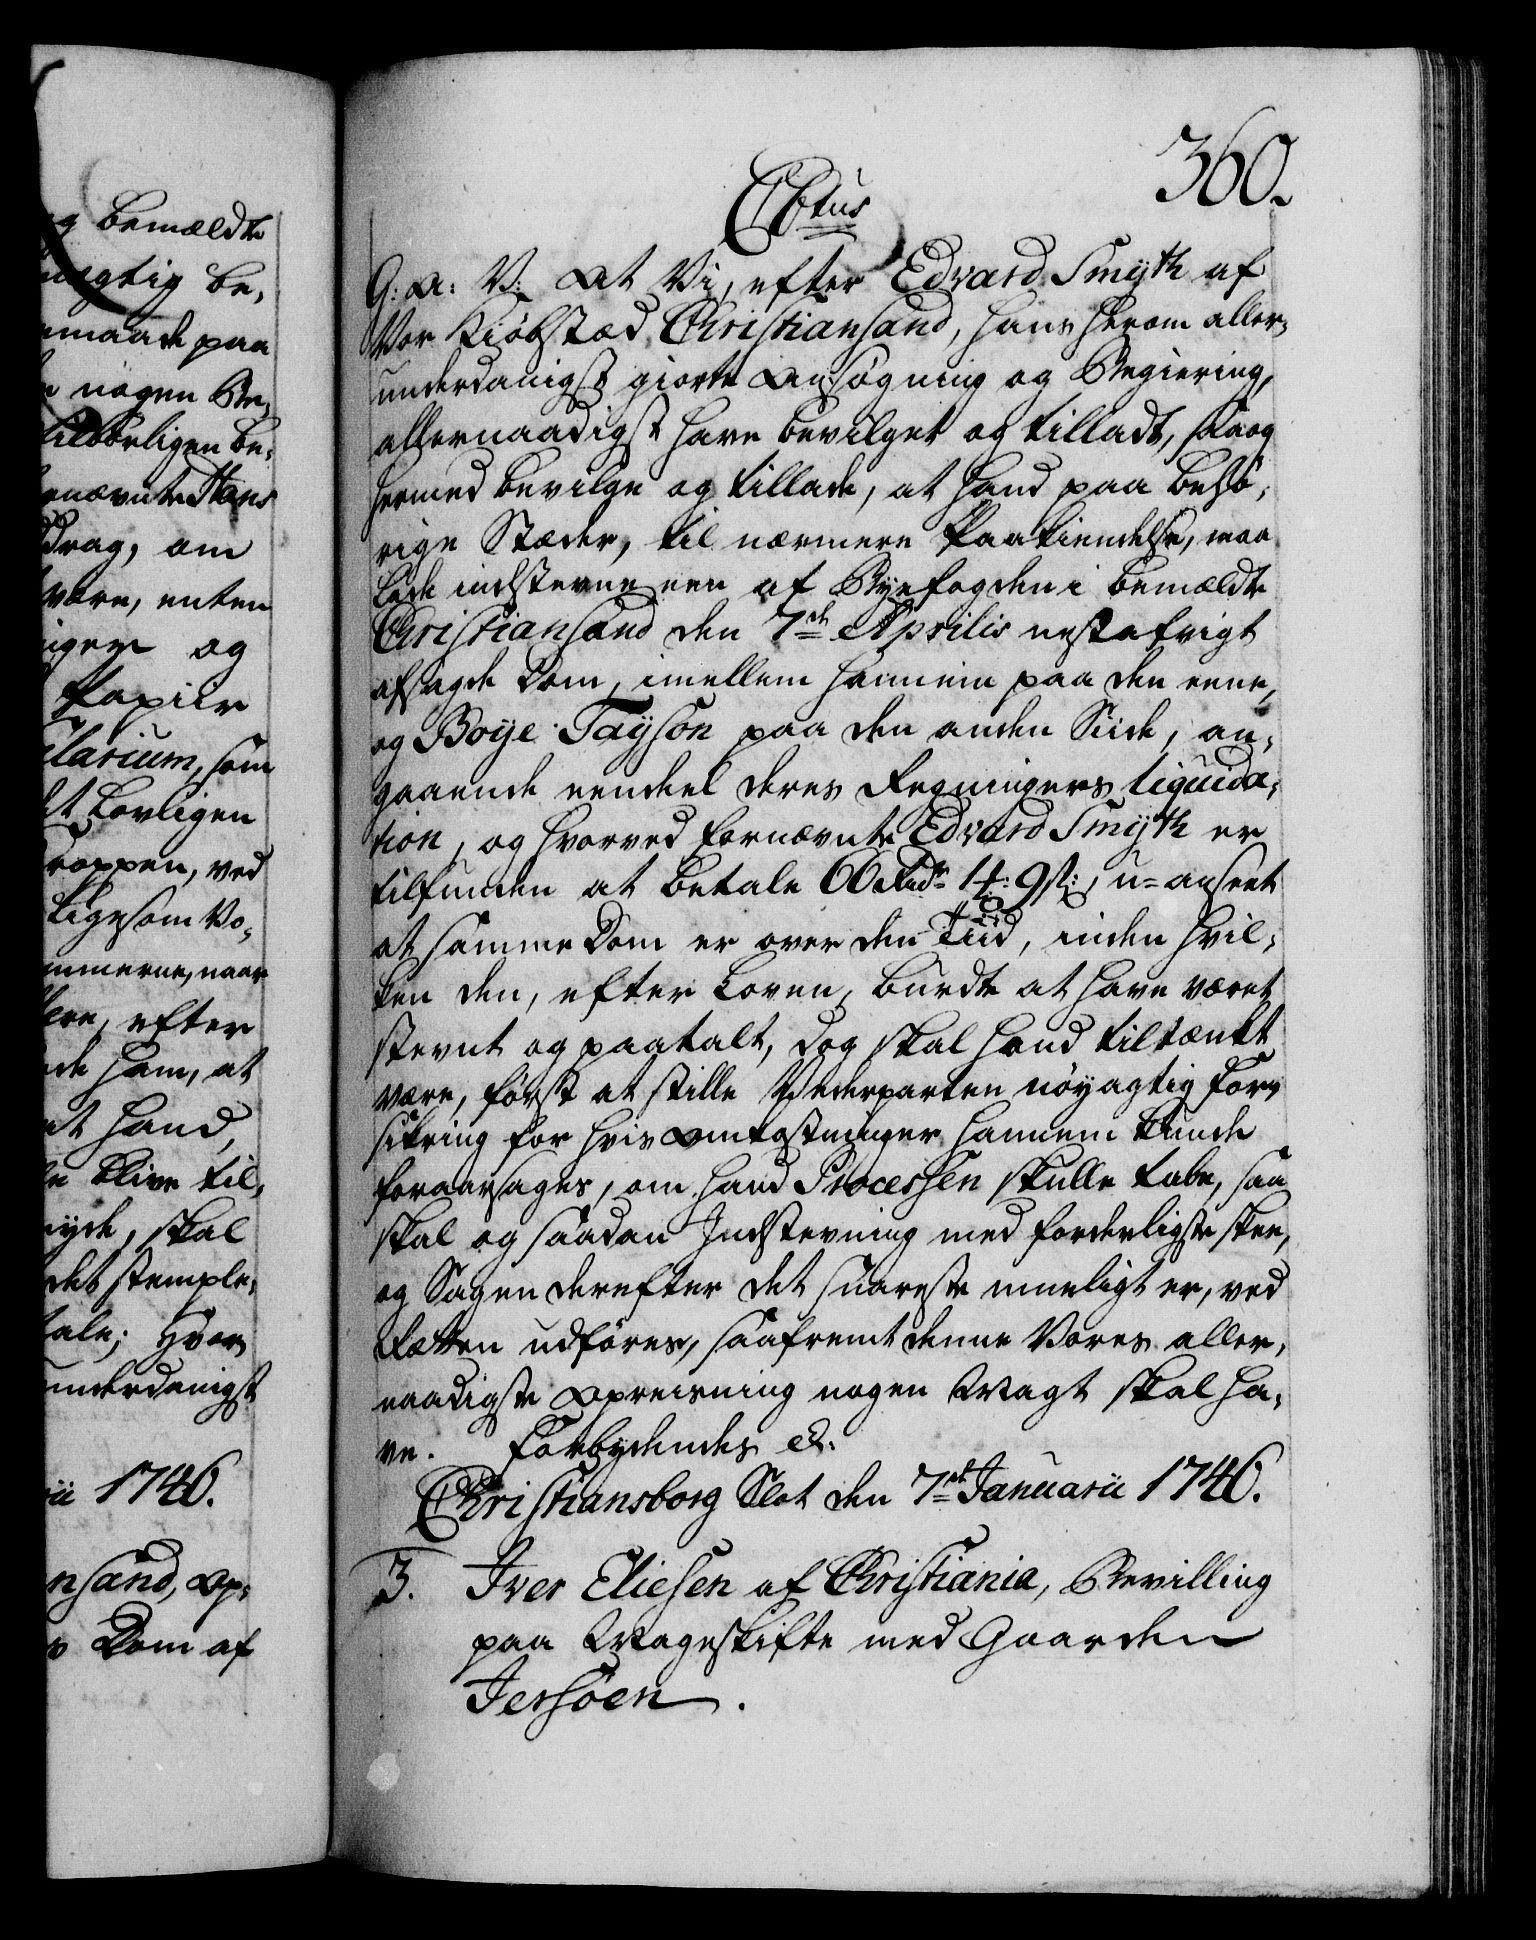 360.
C6tus
G: A: V: At Vi, efter Edvard Smyth af
Vor Kiöbstæd Christiansand, hans herom aller,
underdanigst giorte Ansøgning og Begiering,
allernaadigst have bevilget og tilladt, saa og
hermed bevilge og tillade, at hand paa behö,
rige Stæder, til nærmere Paakiendelse, maa
lade indstevne een af Byefogden i bemældte
Christiansand den 7de Aprilis nestafvigt
afsagde Dom, imellem hannem paa den eene,
og Boye Tayson paa den anden Siide, an,
gaaende eendeel deres Regningers liquida,
tion, og hvorved fornævnte Edvard Smyth er
tilfunden at betale 66 Rdr 14: 9 s:, u=anseet
at samme Dom er over den Tiid, inden hvil,
ken den, efter Loven, burdte at have været
stevnt og paatalt, dog skal hand tiltænkt
være, først at stille Vederparten nöyagtig for,
sikring for hvis Omkostninger hannem kunde
foraarsages, om hand Processen skulle tabe, saa
skal og saadan Indstevning med forderligste skee,
og Sagen derefter det snareste mueligt er, ved
Retten udföres, saafremt denne Vores aller,
naadigste Opreisning nogen Magt skal ha,
ve. Forbydendes &.
Christiansborg Slot den 7de Januarii 1746.
3. Iver Eliesen af Christiania, Bevilling
paa Mageskifte med Gaarden
Jersöen.
g bemældte
agtig be,
maade paa
nogen Be,
tilbörligen be,
nævnte Hans
drag, om
være, enten
igen og
Papiir
larium, som
t Lovligen
roppen, ved
ligesom Vo,
mmerne, naar
ere, efter
de ham, at
at hand,
blive til,
nyde, skal
det stemple,
tale; hvor
underdanigst
ii 1746.
nsand, Op,
Dom af